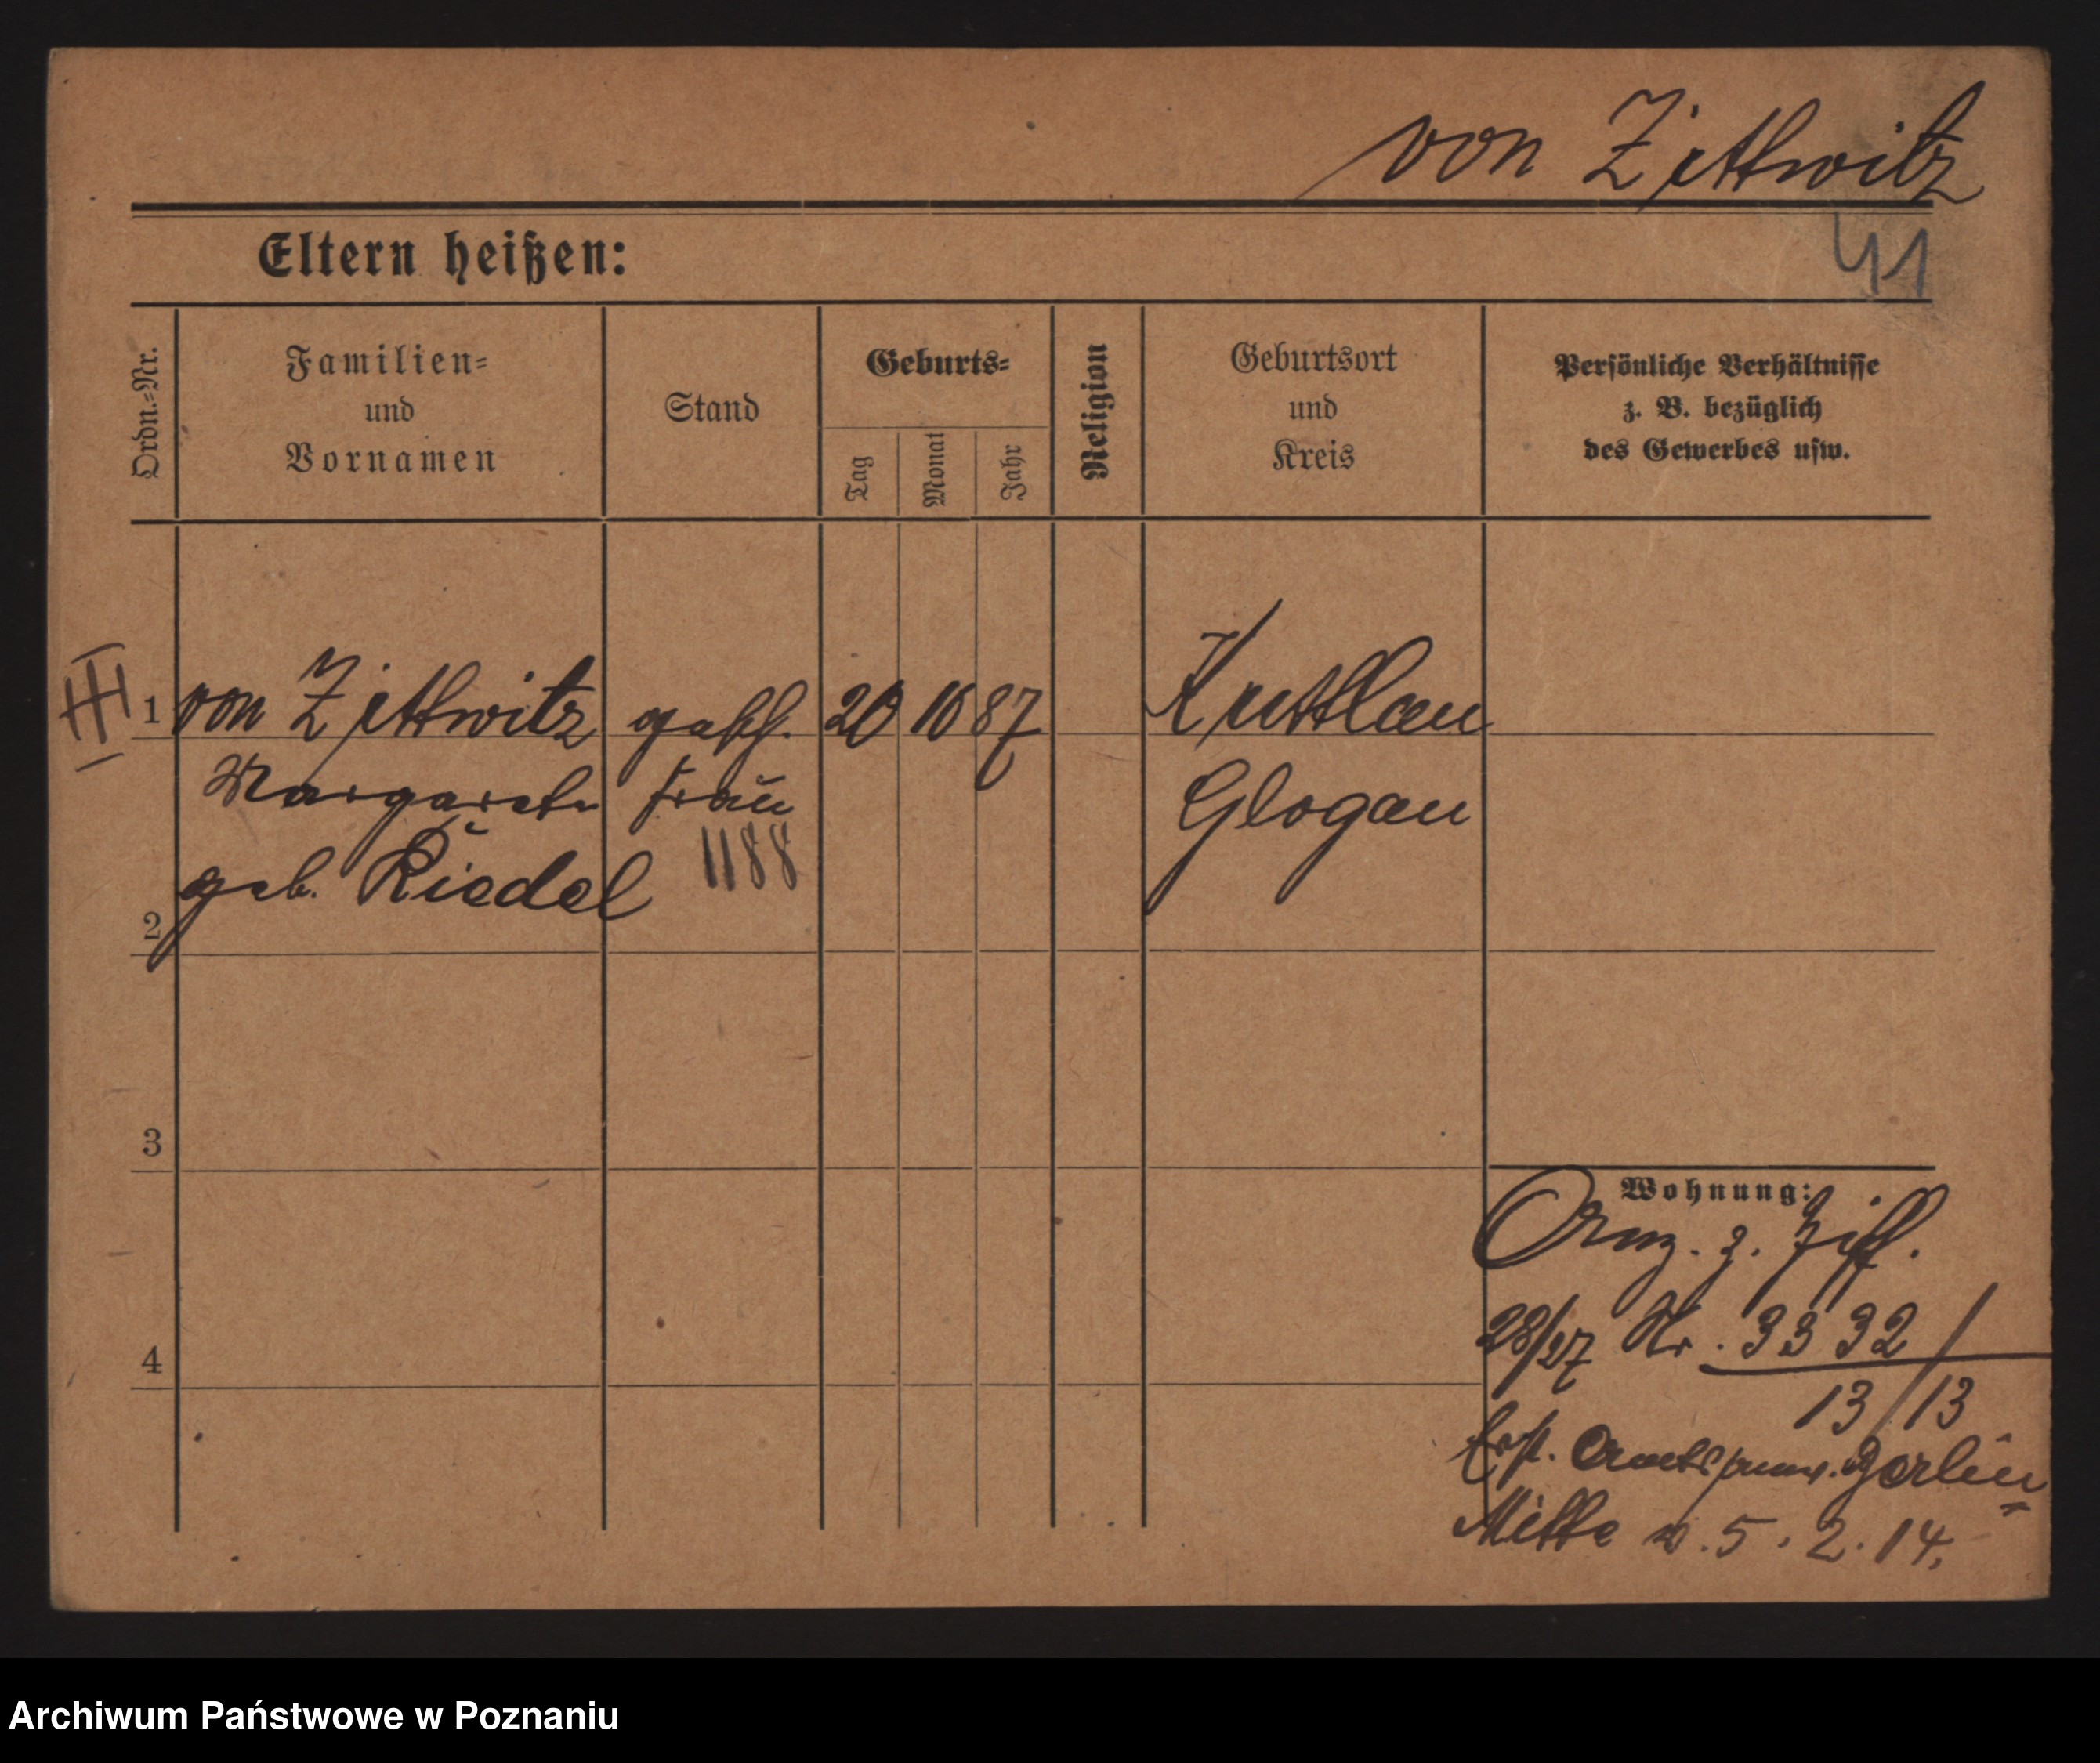 von Zitzwitz
41
Eltern heißen:
Ordn.-Nr.
Familien-
und
Vornamen
Stand
Geburts-
Tag
Monat
Jahr
Religion
Geburtsort
und
Kreis
Persönliche Verhältnisse
z. B. bezüglich
des Gewerbes usw.
III
1 von Zitzwitz gesch. 20 10 87 Kuttlau
Margarete Frau Glogau
1188
geb. Riedel
2
3
4
Wohnung:
28/27 Nr. 3332/
13/13
Berlin
Mitte v. 5. 2. 14.
Archiwum Państwowe w Poznaniu